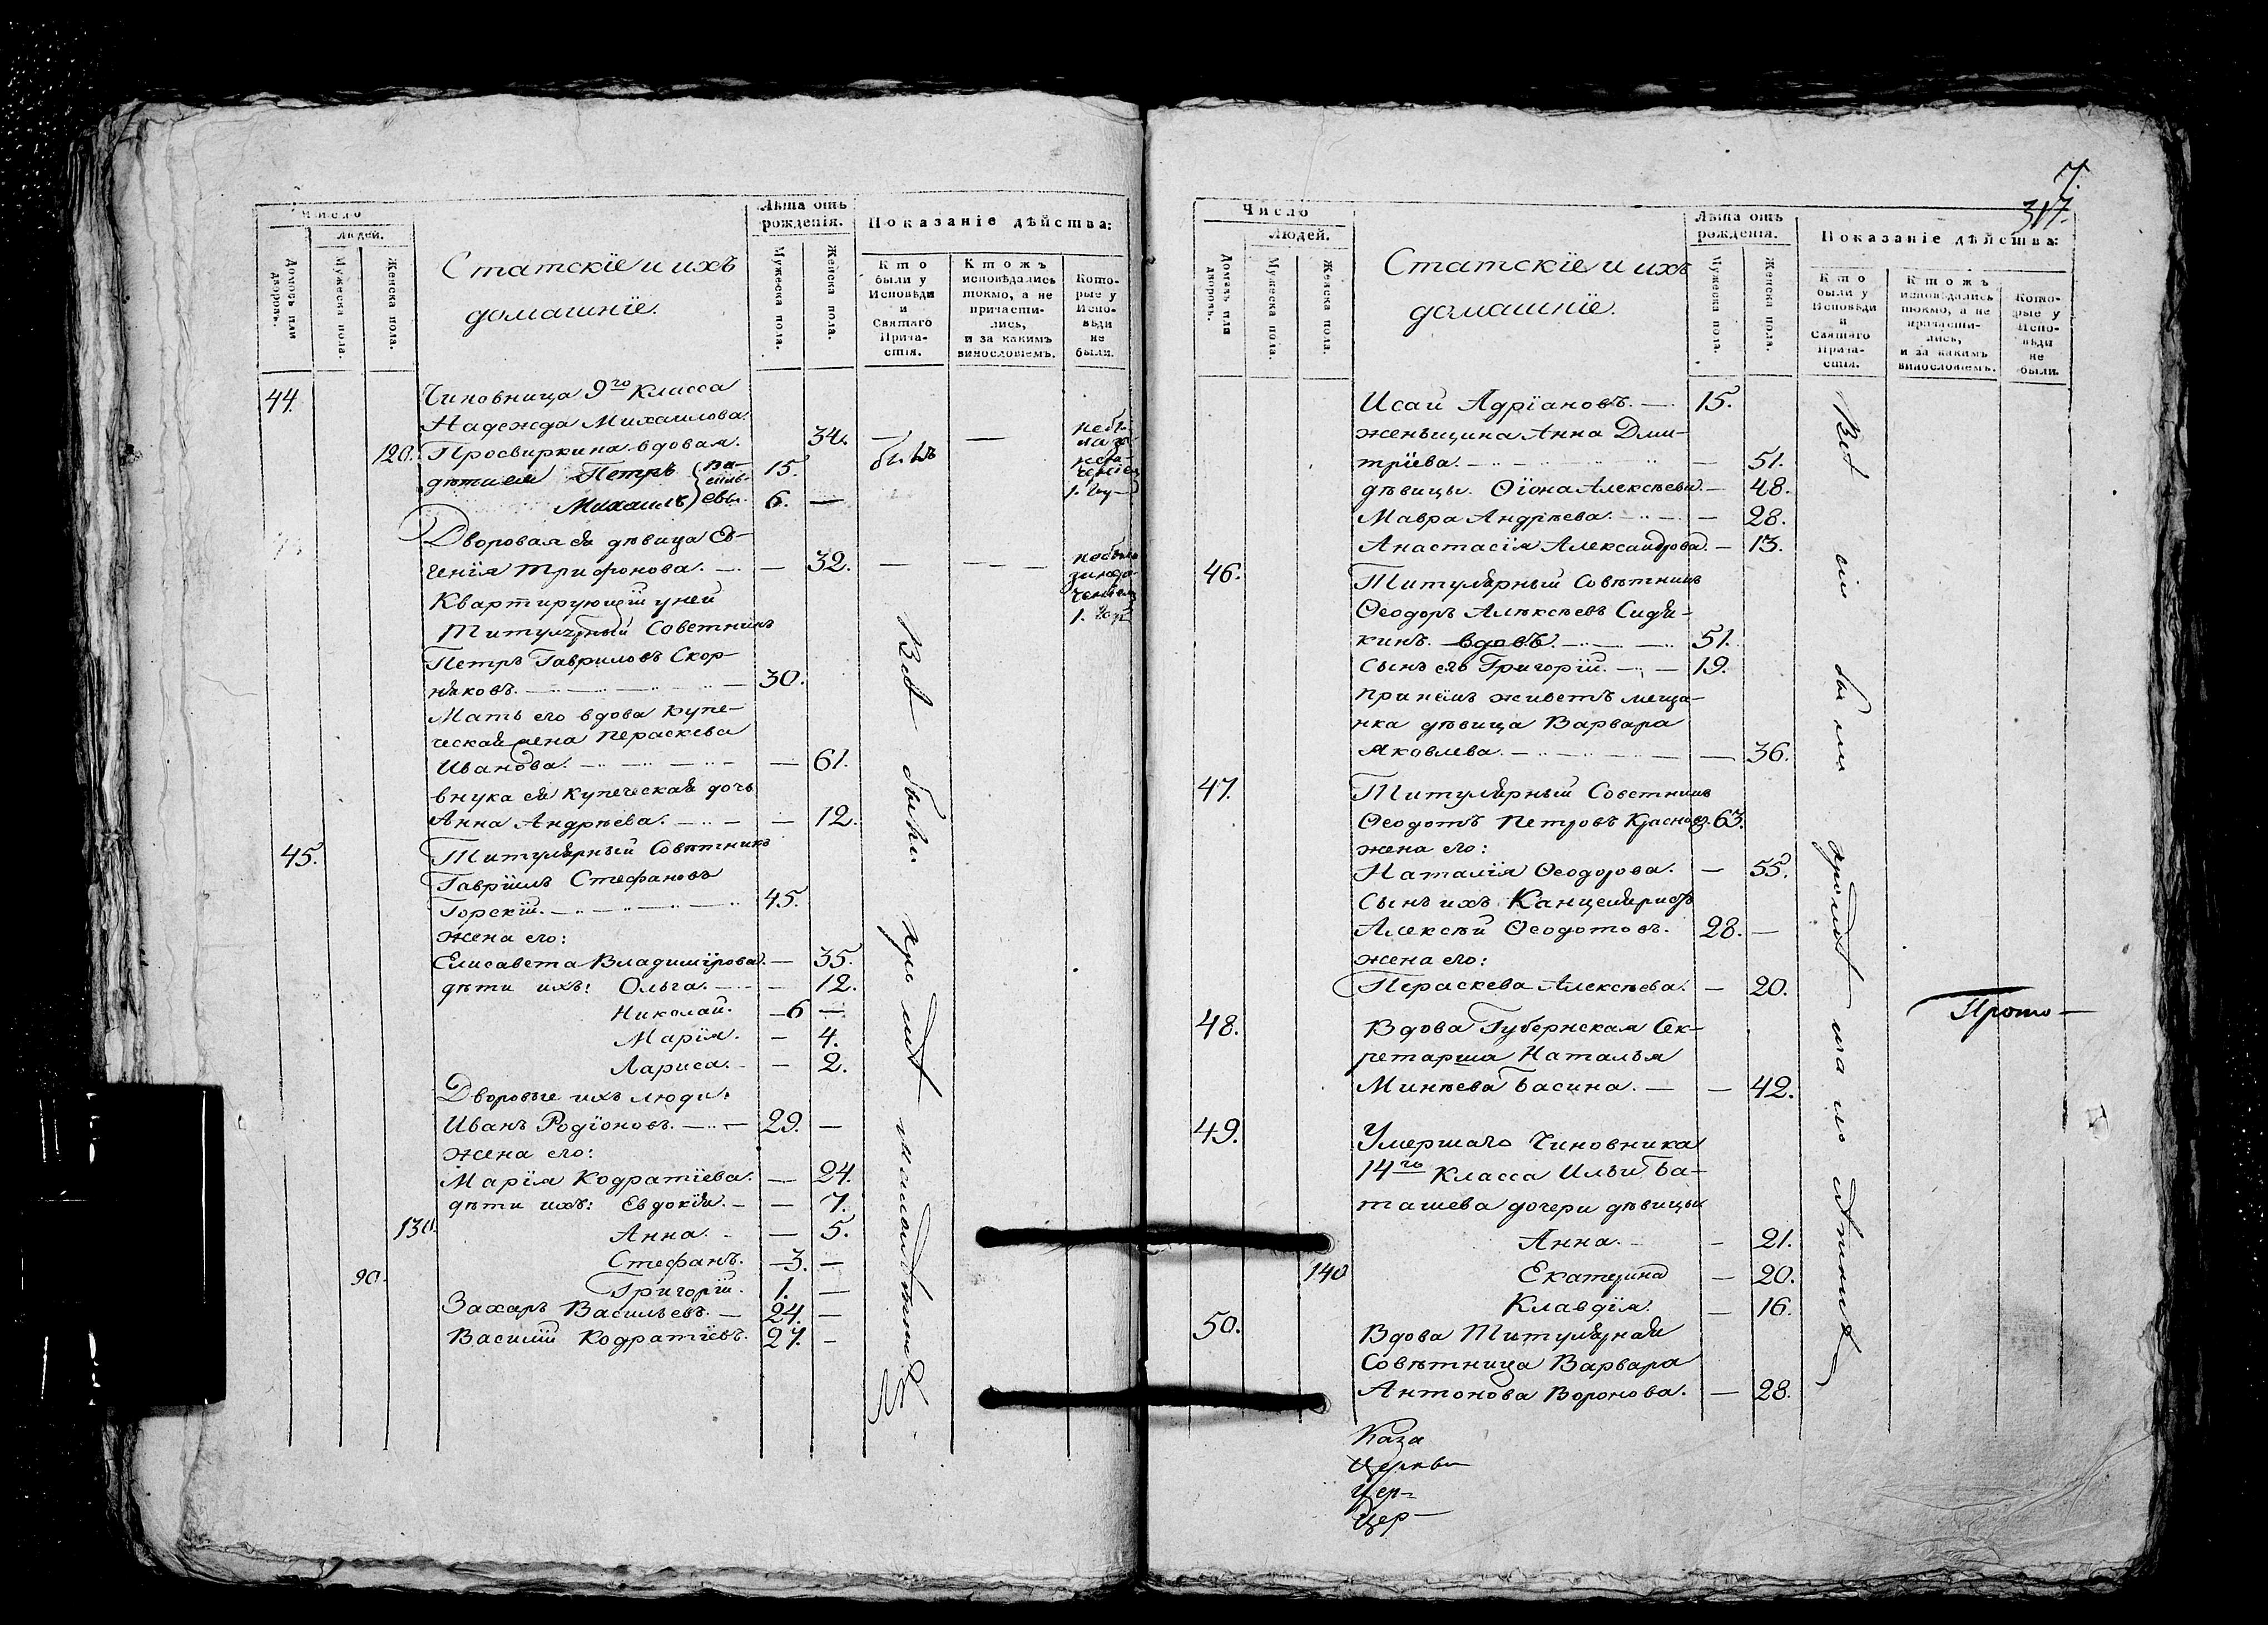 Число
Людей.
Домовъ или дворовъ.
Мужеска пола.
Женска пола.
Статскїе и ихъ
домашнїе.
Лѣта отъ
рожденія.
Мужеска пола.
Женска пола.
Показаніе дѣйства:
Кто
были у
Исповѣди
и
Святаго
Прича-
стія.
Ктожъ
исповѣдались
токмо, а не
причасти-
лись,
и за какимъ
винословіемъ.
Кото-
рые у
Испо-
вѣди
не
были.
44. Чиновница 9го Класса
Надежда Михаилова
120. Просвиркина вдовая. 34. — —
дѣти ея Петръ 15. былъ
Михаилъ 6. —
Дворовая ея дѣвица Ев-
генїя Трифонова. — — 32. — — —
Квартирующїй у ней
Титулярный Советникъ
Петръ Гавриловъ Скор-
няковъ. — 30.
Мать его вдова купе-
ческая жена Параскева
Иванова. — — 61.
внука ея купеческая дочь
Анна Андрѣева. — — 12.
45. Титулярный Совѣтникъ
Гаврїилъ Стефановъ
Горскїй. — 45.
жена его:
Елисавета Владимїрова. — 35.
дѣти ихъ: Ольга. — — 12.
Николай. — 6 —
Марїя. — 4.
Лариса. — 2.
Дворовые ихъ люди:
Иванъ Родїоновъ. — 29. —
жена его:
Марїя Кодратїева. — 24.
дѣти ихъ: Евдокїя. — — 7.
130. Анна. — 5.
Стефанъ. — 3. —
90. Григорїй. 1. —
Захаръ Васильевъ. — 24. —
Василїй Кодратїевъ. 27. —
Всѣ были
7.
317.
Число
Людей.
Домовъ или дворовъ.
Мужеска пола.
Женска пола.
Статскїе и ихъ
домашнїе.
Лѣта отъ
рожденія.
Мужеска пола.
Женска пола.
Показаніе дѣйства:
Кто
были у
Исповѣди
и
Святаго
Прича-
стія.
Ктожъ
исповѣдались
токмо, а не
причасти-
лись,
и за какимъ
винословіемъ.
Кото-
рые у
Испо-
вѣди
не
были.
Исаи Адрїановъ. — 15.
женьщина Анна Дми-
трїева. — — 51.
дѣвицы. Ѳїона Алексѣева. — 48.
Мавра Андрѣева. — — 28.
Анастасїя Александрова. — 13.
46. Титулярный Совѣтникъ
Ѳеодоръ Алексѣевъ Сидя-
кинъ. вдовъ. — 51.
Сынъ его Григорїй. — 19.
при нёмъ живетъ меща-
нка дѣвица Варвара
Яковлева. — — 36.
47. Титулярный Советникъ
Ѳеодотъ Петровъ Красновъ. 63.
жена его:
Наталїя Ѳеодорова. — 55.
Сынъ ихъ Канцеляристъ
Алексѣй Ѳеодотовъ. 28. —
жена его:
Параскева Алексѣева. — 20.
48. Вдова Губернская Сек-
ретарша Наталья
Минѣева Басина. — — 42.
49. Умершаго Чиновника
14го Класса Ильи Ба-
ташева дочери дѣвицы
Анна. — 21.
140 Екатерина — 20.
Клавдїя. — 16.
50. Вдова Титулярная
Совѣтница Варвара
Антонова Воронова. — 28.
Всѣ сіи были
Прото—
Каза
Церкви
Цер-
Цер-